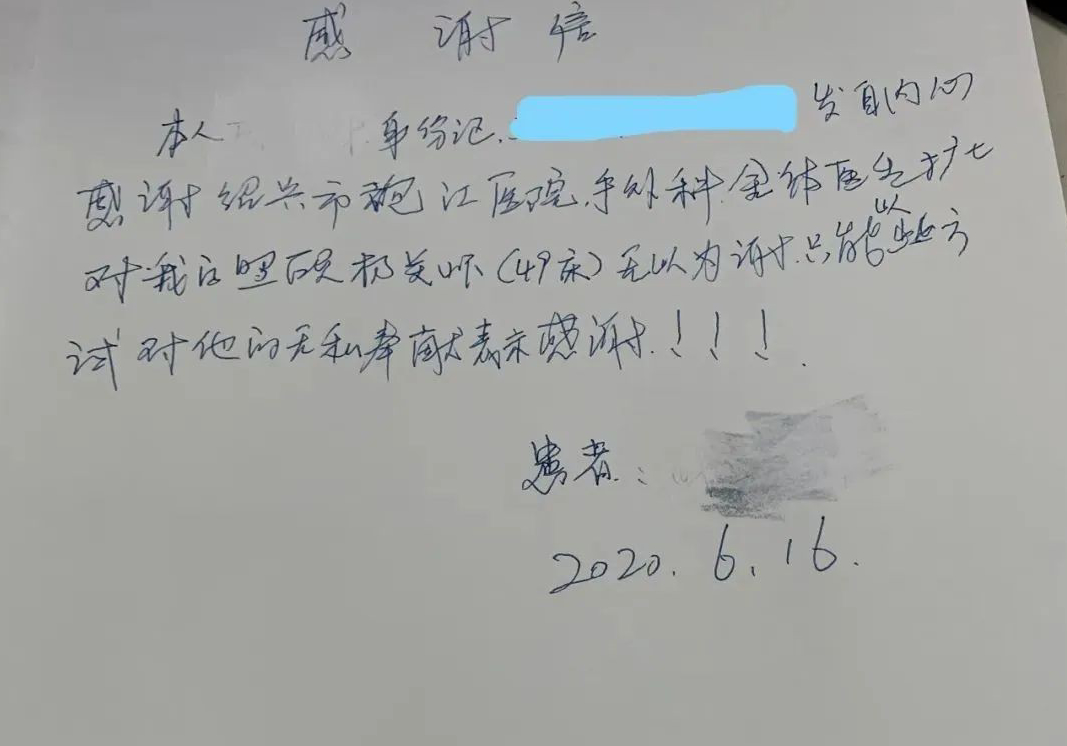 感谢信
本人 身份记. 发自内心
感谢绍兴市袍江医院.手外科.金 医生护士
对我的照 关怀(49床)无以为谢.只能以 方
试对他的无私奉献表示感谢.!!!.
患者:
2020.6.16.